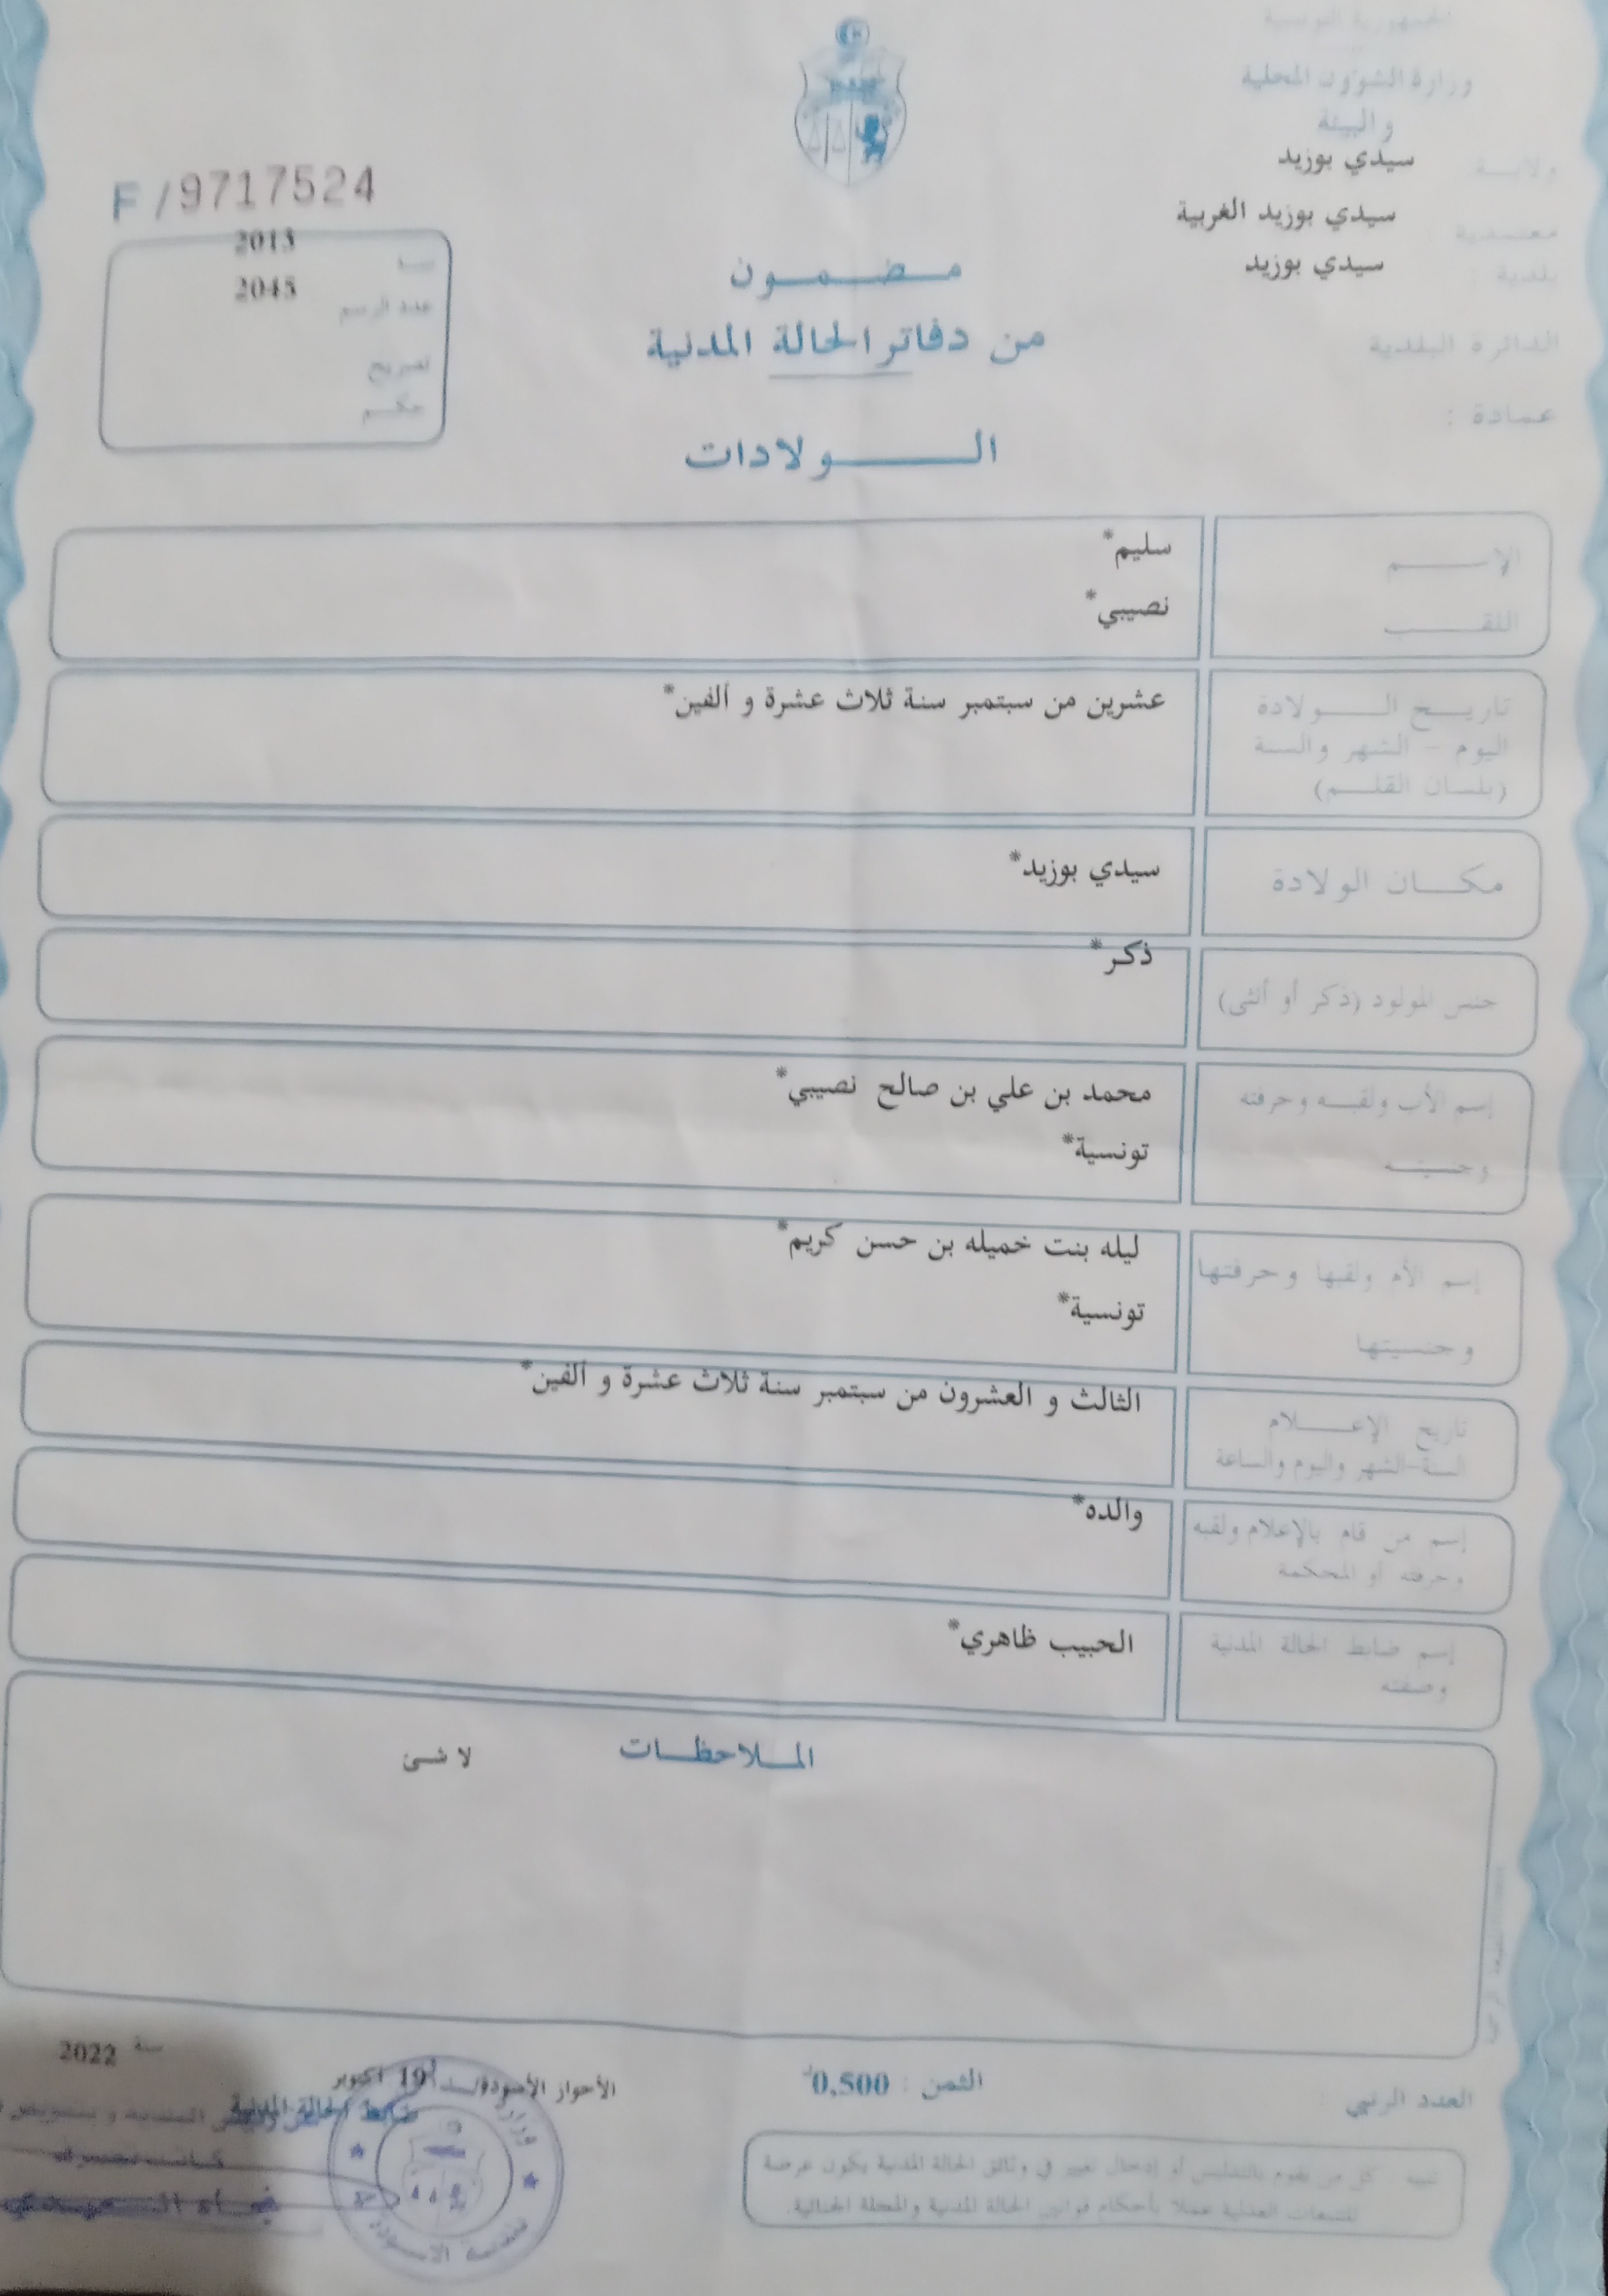 الجمهورية التونسية
وزارة الشؤون المحلية
و البيئة
ولايـــة: سيدي بوزيد
معتمدية : سيدي بوزيد الغربية
بلدية : سيدي بوزيد
الدائرة البلدية
عمادة :
F / 9717524
2013
عدد الرسم 2045
تصريح
حكـــم
مــضــمــون
من دفاتر الحالة المدنية
الـــولادات
الإســـــم سليم*
اللقـــــب نصيبي*
تاريــخ الـــولادة عشرين من سبتمبر سنة ثلاث عشرة و ألفين*
اليوم - الشهر والسنة
(بلسان القلـــم)
مكـــان الولادة سيدي بوزيد*
جنس المولود (ذكر أو أنثى) ذكر*
إسم الأب ولقبــه وحرفته محمد بن علي بن صالح نصيبي*
وجنسيتــه تونسية*
إسم الأم ولقبها وحرفتها ليله بنت خميله بن حسن كريم*
وجنسيتها تونسية*
تاريخ الإعـــلام الثالث و العشرون من سبتمبر سنة ثلاث عشرة و ألفين*
السنة-الشهر واليوم والساعة
إسم من قام بالإعلام ولقبه والده*
وحرفته أو المحكمة
إسم ضابط الحالة المدنية الحبيب ظاهري*
وصفته
المــلاحظــات لا شئ
العدد الرتبي
الثمن : 0,500د
الأحواز الأسودة
19 أكتوبر
سنة 2022
ضابط الحالة المدنية
تنبيه كل من يقوم بالتدليس أو إدخال تغيير في وثائق الحالة المدنية يكون عرضة
للتتبعات العدلية عملا بأحكام قوانين الحالة المدنية والمجلة الجنائية.